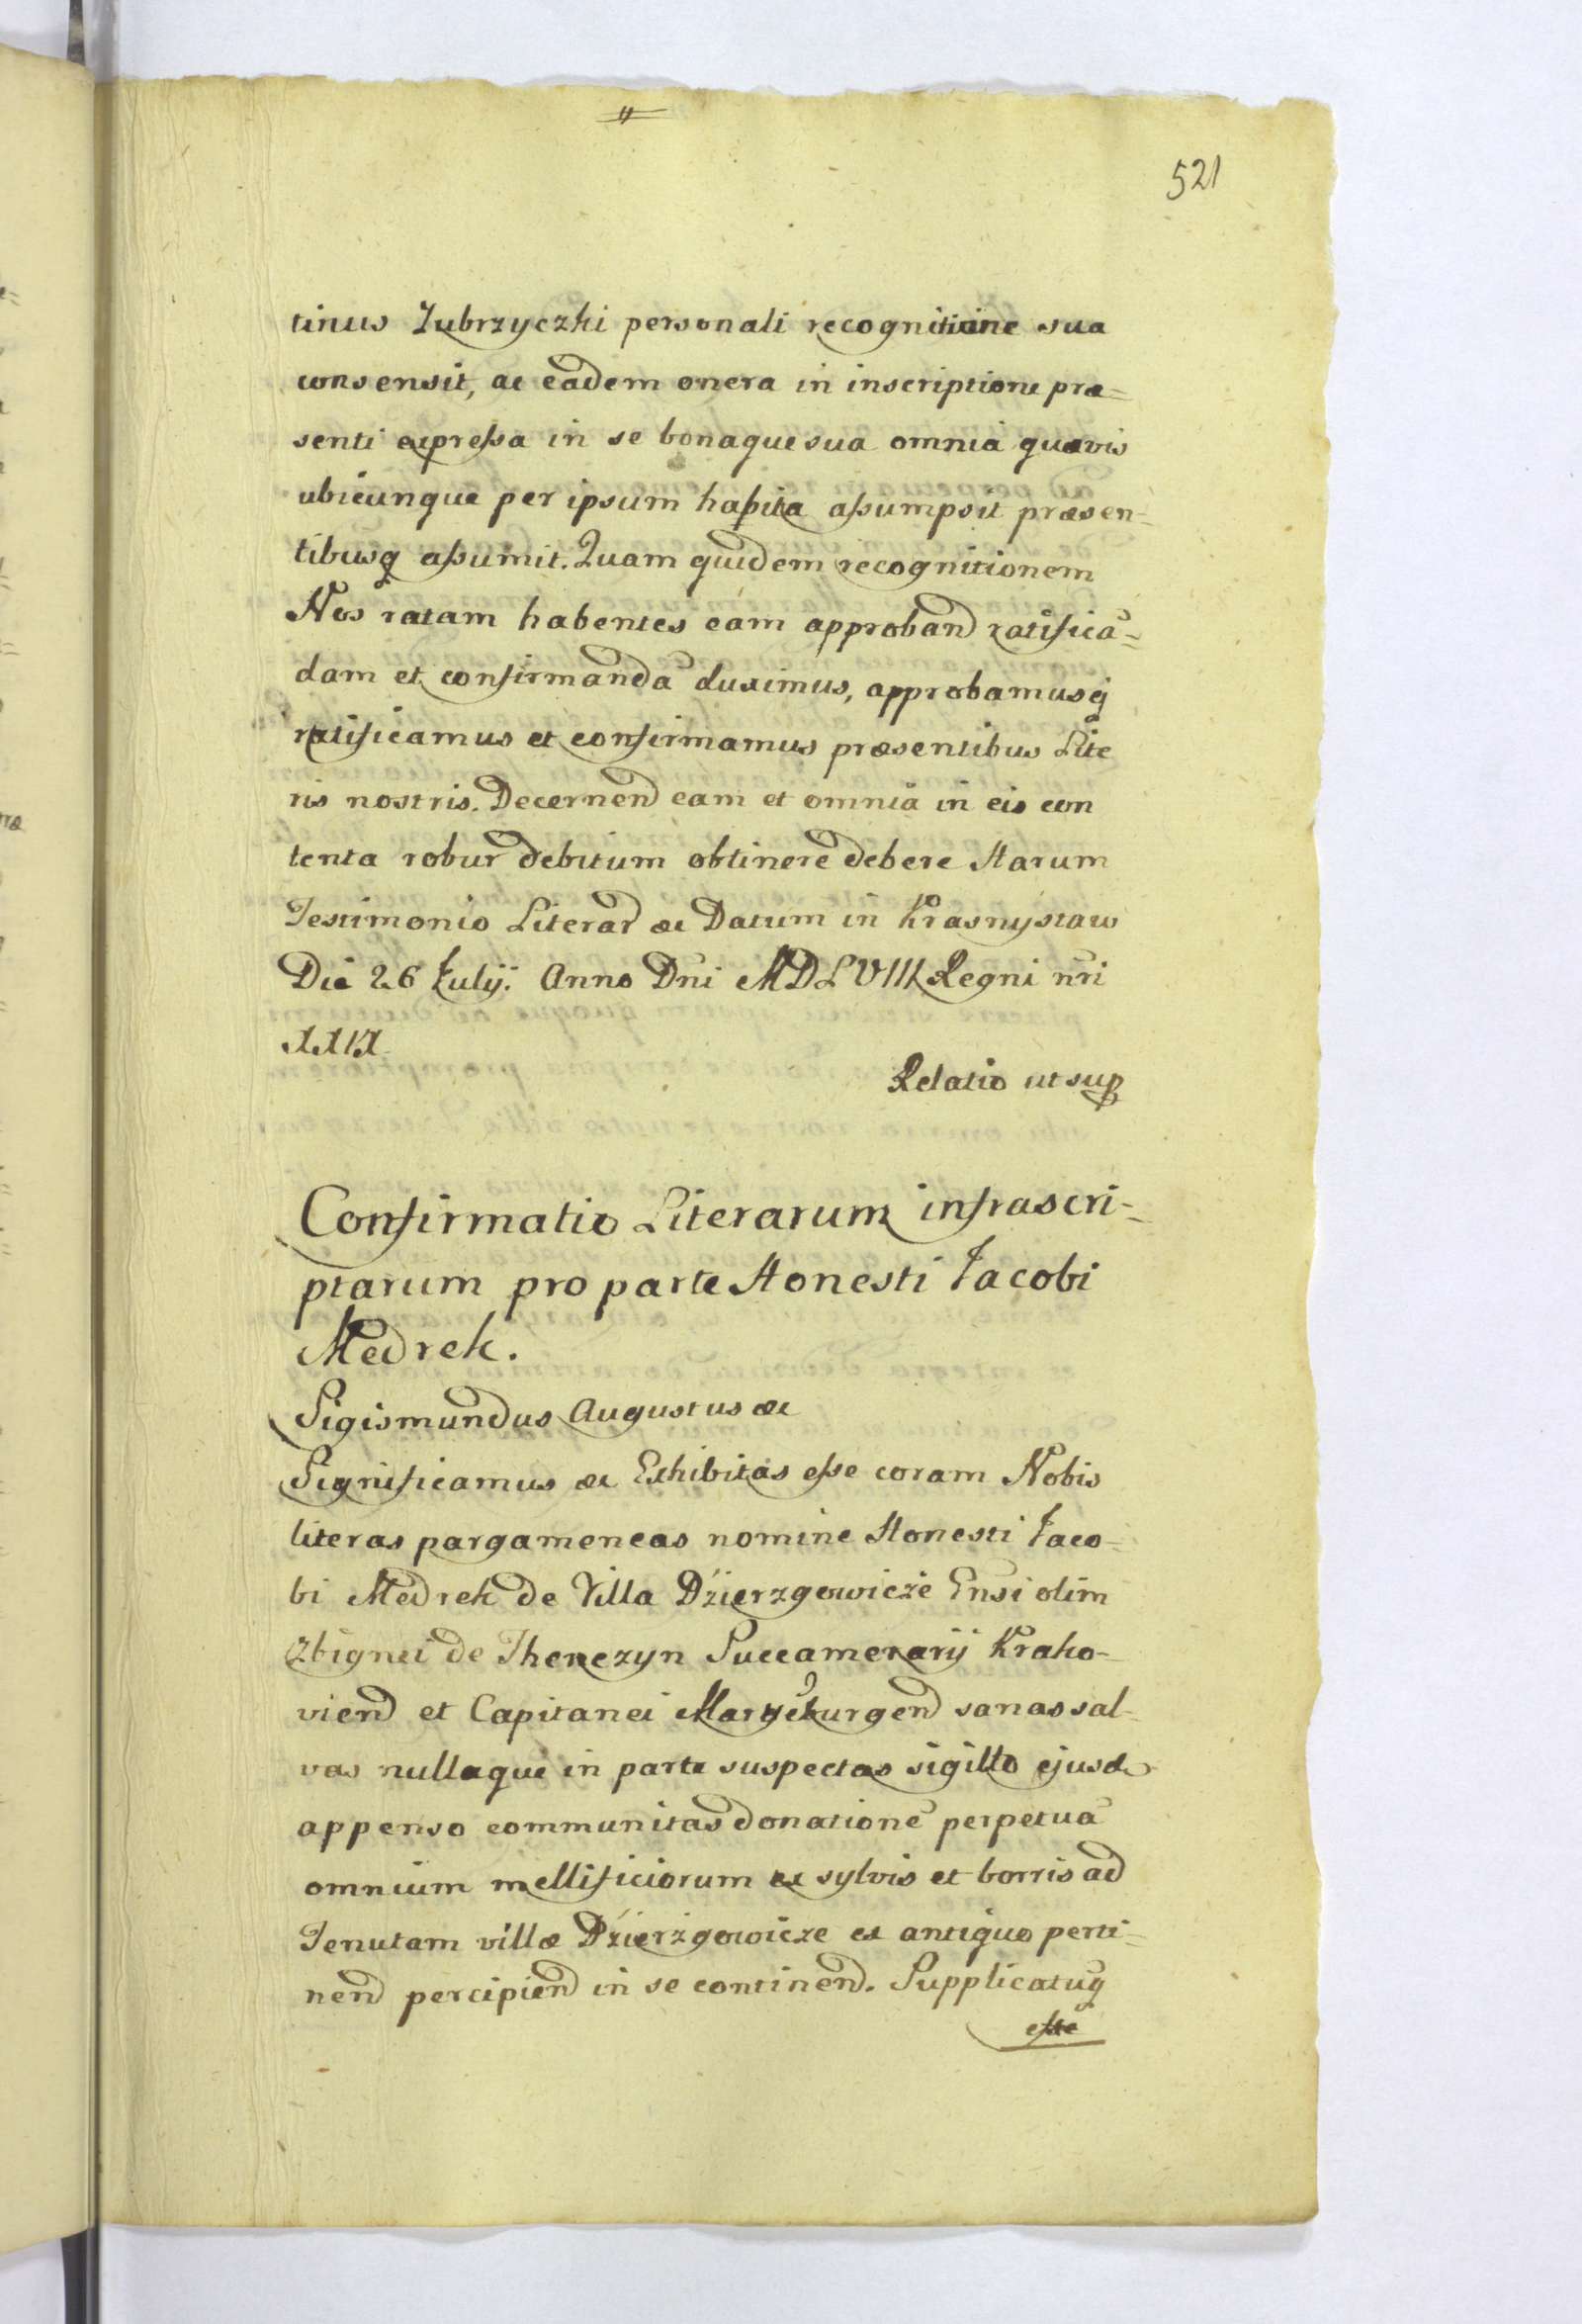 521
tinus Zubrzyczki personali recognitione sua
consensit, ac eadem onera in inscriptione præ=
senti expreſsa in se bonaque sua omnia quævis
ubicunque per ipsum habita aſsumpsit præsen=
tibusq aſsumit. Quam quidem recognitionem
Nos ratam habentes eam approband ratificā=
dam et confirmandā duximus, approbamusq
ratificamus et confirmamus præsentibus Lite
ris nostris. Decernend eam et omnia in eis con
tenta robur debitum obtinere debere Harum
Testimonio Literar &c Datum in Krasnystaw
Die 26 Julij. Anno Dni MDLVIII Regni nri
XXIX
Relatio ut sup
Confirmatio Literarum infrascri-
ptarum pro parte Honesti Jacobi
Medrek.
Sigismundus Augustus &c
Significamus &c Exhibitas eſse coram Nobis
literas pargameneas nomine Honesti Jaco-
bi Medrek de Villa Dźierzgowicze Gnsi olim
Zbignei de Thenczyn Succamerarij Krako-
viend et Capitanei Marÿeburgend sanas sal-
vas nullaque in parte suspectas sigillo ejusd
appenso communitas donationē perpetuā
omnium mellificiorum ex sylvis et borris ad
Tenutam villæ Dźierżgowicze ex antiquo perti=
nend percipiend in se continend. Supplicatuq
eſse